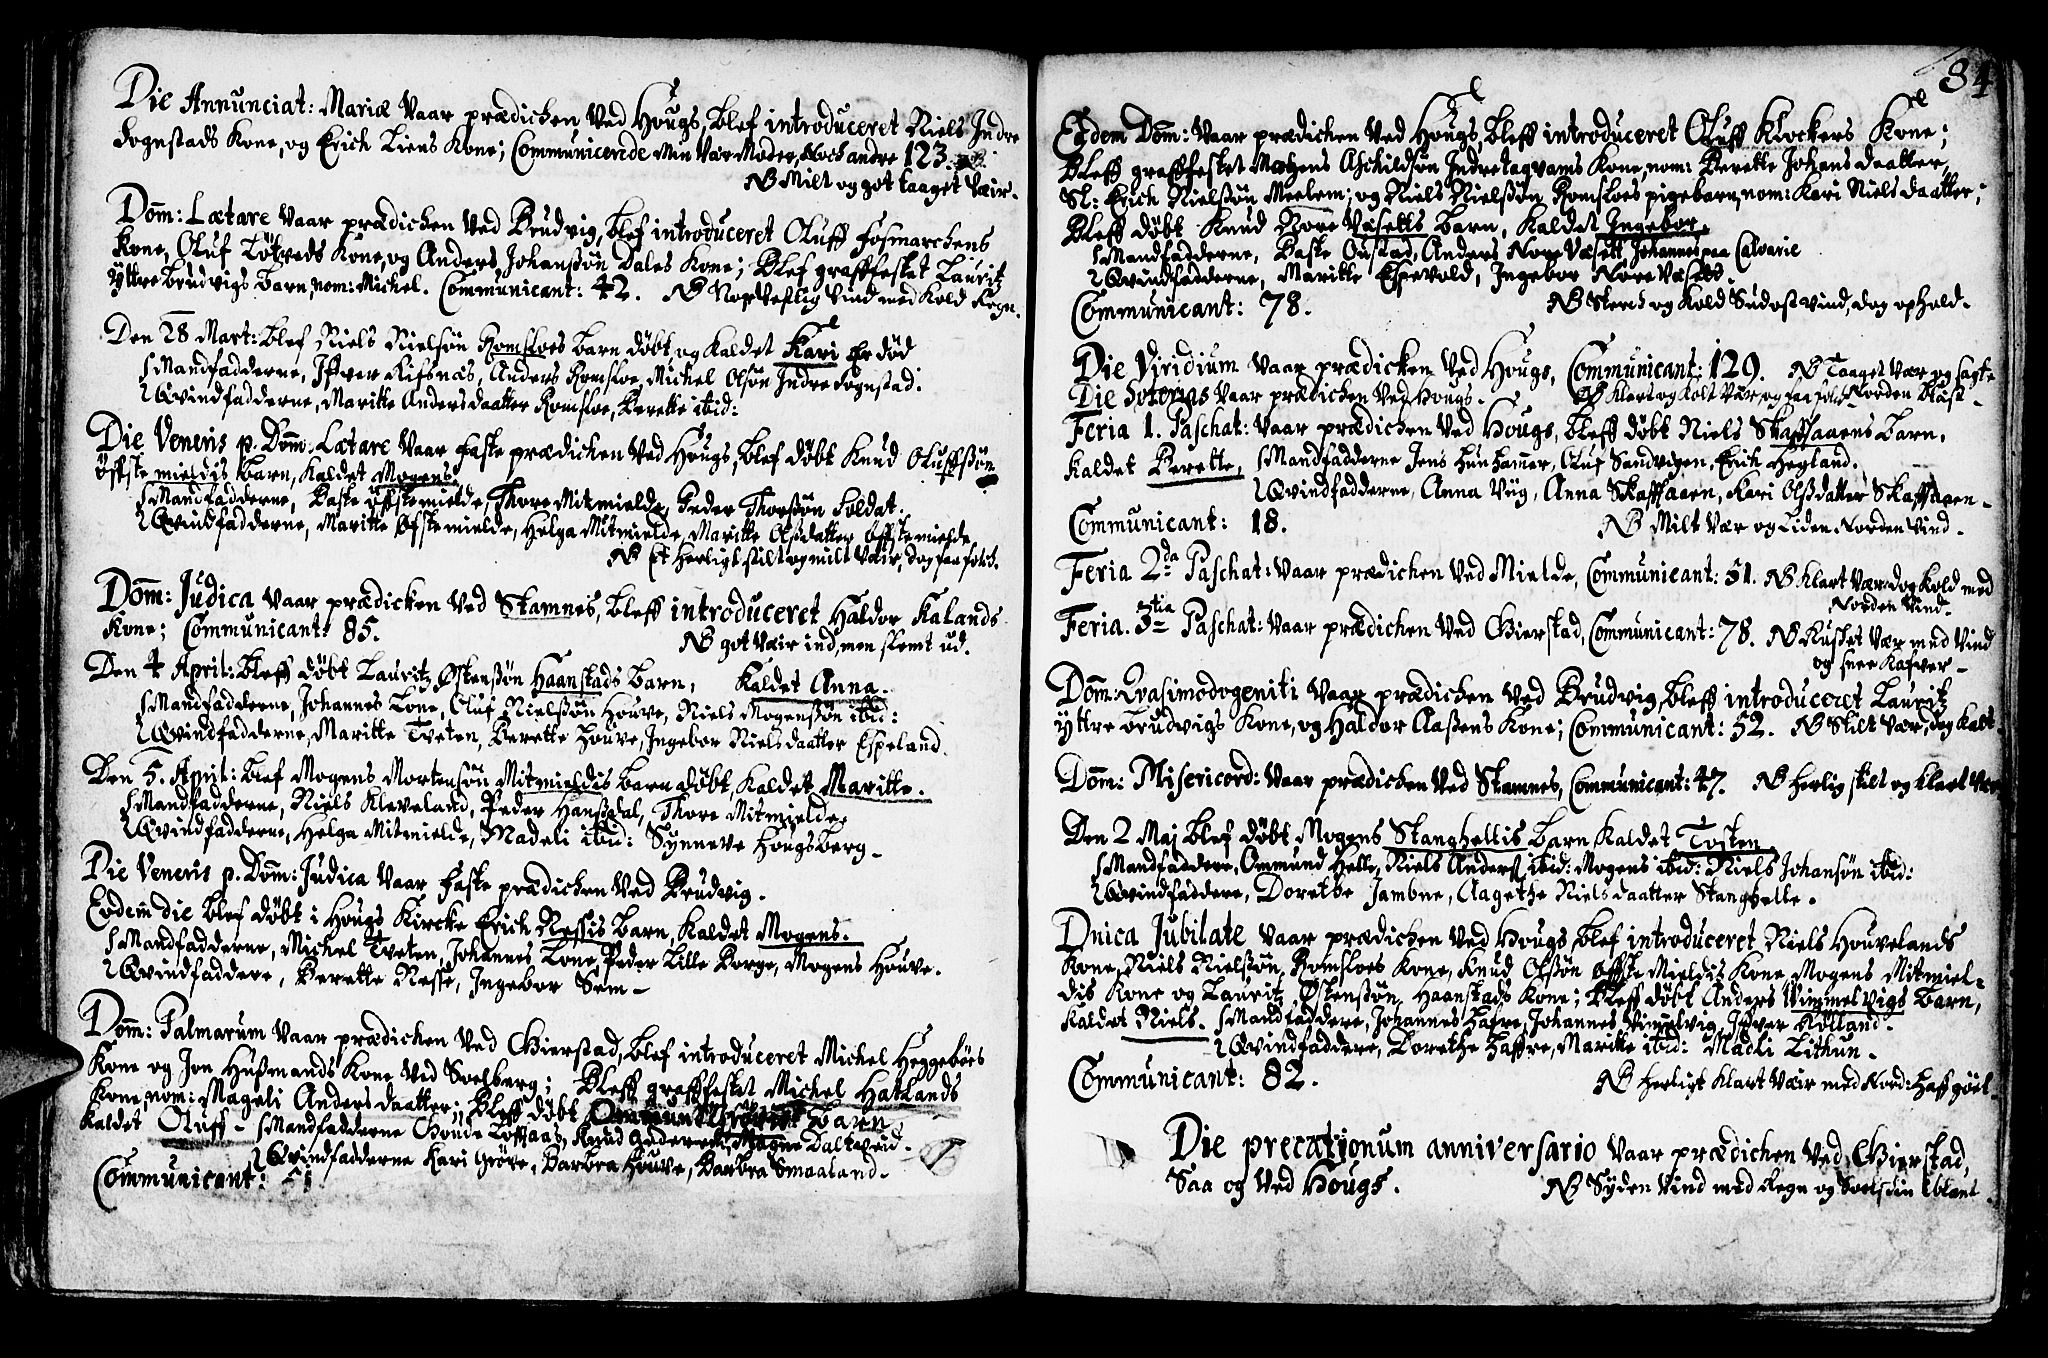 Die Annunciat: Mariæ Vaar prædicken Ved Hougs, Blef introduceret Niels Indre
Sognstads Kone, og Erich Liens Kone; Communicerede Min Vær Moder, Noch andre 123.
NB Milt og got taaget Væir.
Dom̄: Lætare Vaar prædicken Ved Brudvig, blef introduceret Oluff Fosmarchens
Kone, Oluf Tötveds Kone, og Anders Johanßøn Dales Kone; Blef grafffestet Lauritz
Yttre Brudvigs Barn, nom: Michel. Communicant: 42. NB Nor Vestlig Vind med Kold Regn.
Den 28 Mart: Blef Niels Nielsøn Romsloes Barn döbt, og Kaldet Kari Er död
Mandfadderne, Iffver Rifsnæs, Anders Romsloe, Michel Olsøn Indre Sognstad.
Qvindfadderne, Maritte Andersdaatter Romsloe, Berette ibid:
Die Veneris p. Dom̄: Lætare Vaar Faste prædicken Ved Hougs, Blef döbt Knud Olufssøn
Öffste mieldis Barn, Kaldet Mogens.
Mandfadderne, Baste Öffstemielde, Thore Mitmielde, Peder Thorßøn Soldat.
Qvindfadderne, Maritte Öfstemielde, Helga Mitmielde, Maritte Olßdatter Öffstemielde.
NB Et herligt stilt og milt Væir, dog faa folch.
Dom̄: Judica Vaar prædicken Ved Stamnes, Bleff introduceret Haldor Kalands
Kone; Communicant: 85. NB got Væir ind, men slemt ud.
Den 4 April: Bleff döbt Lauritz Östenßøn Haanstads Barn, Kaldet Anna.
Mandfadderne, Johannes Tone, Oluf Nielßøn Houve, Niels Mogenßøn ibid:
Qvindfadderne, Maritte Tveten, Berette Houve, Ingebor Nielsdaatter Espeland.
Den 5. April: Blef Mogens Mortensøn Mitmieldis Barn döbt, Kaldet Maritte.
Mandfadderne, Niels Kleveland, Peder Hanßdal, Thore Mitmielde.
Qvindfadderne, Helga Mitmielde, Madeli ibid: Synneve Hougsberg.
Die Veneris p. Dom̄: Judica Vaar Faste prædicken Ved Brudvig.
Eodem die Blef döbt i Hougs Kircke Erich Ressis Barn, Kaldet Mogens.
Mandfadderne, Michel Tveten, Johannes Tone, Peder Lille Borge, Mogens Houve.
Qvindfaddere, Berette Resse, Ingebor Sem
Dom̄: Palmarum Vaar prædicken Ved Gierstad, blef introduceret Michel Heggebörs
Kone og Jon Hußmands Kone Ved Soelberg; Bleff grafffestet Michel Hatlands
Kone, nom: Mageli Andersdaatter; Bleff döbt Barn
Kaldet Oluff Mandfadderne Gonde Toffaas, Knud Magne Dalseid.
Qvindfadderne Kari Gröve, Barbra Houve, Barbra Smaaland.
Communicant: 51
84
Eodem Dom̄: Vaar prædicken Ved Hougs, Bleff introduceret Oluff Klockers Kone;
Bleff grafffestet Mogens Aschildsøn Indretagvams Kone, nom: Berette Johans daatter,
Sl: Erich Nielßøn Meelem; og Niels Nielßøn Romsloes pigebarn, nom: Kari Niels daatter;
Bleff döbt Knud Nore Vasetts Barn, Kaldet Ingebor,
Mandfadderne, Baste Oustad, Anders Nore Vasett, Johannes paa Calvarie
Qvindfadderne, Maritte Espevold, Ingebor Nore Vasett.
Communicant: 78. NB Sterch og Kold Sudost vind, dog ophold.
Die Viridium Vaar prædicken Ved Hougs, Communicant: 129. NB Taaget Vær og sagte
Die Soterias Vaar prædicken Ved Hougs. NB Klart og Kolt Vær, og faa folch Norden Blæst.
Feria 1. Paschat: Vaar prædicken Ved Hougs, Bleff döbt Niels Skafsaaens Barn,
Kaldet Berette, Mandfadderne Jens Hunhamer, Oluf Sandvigen, Erich Hegland.
Qvindfadderne, Anna Viig, Anna Skaffsaaen, Kari Olßdatter Skaffsaaen.
Communicant: 18. NB Milt Vær og liden Norden Vind.
Feria 2da Paschat: Vaar prædicken Ved Mielde, Communicant: 51. NB Klart Vær dog Kold med
Norden Vind.
Feria. 3tia Paschat: Vaar prædicken Ved Gierstad, Communicant: 78. NB Rusket Vær med Vind
og snee Kafver
Dom̄: Qvasimodogeniti Vaar prædicken Ved Brudvig, Bleff introduceret Lauritz
Yttre Brudvigs Kone, og Haldor Aaßens Kone; Communicant: 52. NB Stilt Vær, dog Kalt.
Dom̄: Misericord: Vaar prædicken Ved Stamnes, Communicant: 47. NB Herlig stilt og Klart Vær
Den 2 Maj Blef döbt Mogens Stanghellis Barn Kaldet Tosten
Mandfaddere, Ommund Helle, Niels Anders: ibid: Mogens ibid: Niels Johansøn ibid:
Qvindfaddere, Dorethe Jambne, Aagethe Nielsdaatter Stanghelle.
Dnica Jubilate Vaar prædicken Ved Hougs Blef introduceret Niels Houvelands
Kone, Niels Nielßøn Romsloes Kone, Knud Olßøn Öffste Mieldis Kone, Mogens Mitmiel-
dis Kone og Lauritz Östenßøn Haanstads Kone; Bleff döbt Anders Vimmelvigs Barn,
Kaldet Niels. Mandfaddere, Johannes Hafre, Johannes Vimelvig, Iffver Kolland.
Qvindfaddere, Dorethe Haffre, Maritte ibid: Madli Lithun.
Communicant: 82. NB Herligt Klart Vær med Nord: Haffgöel.
Die precationum anniversario Vaar prædicken Ved Gierstad,
Saa og Ved Hougs. NB Syden Vind med Regn og Soelskin iblant.